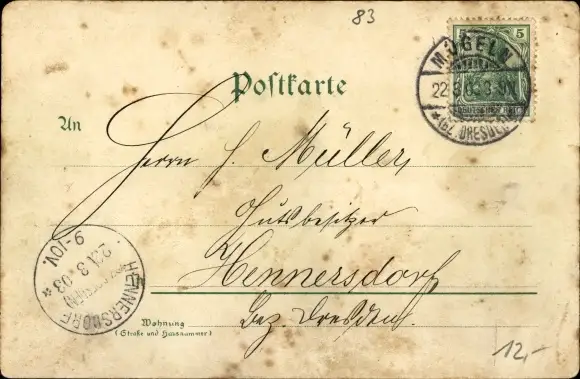 83
5
MÜGELN
22.3.03. 3-4N.
* (BZ. DRESDEN)
Postkarte
An
Herrn H. Müller,
Gutsbesitzer
Hennersdorf
Bez. Dresden.
HENNERSDORF
23. 3. 03 *
9-10V
Wohnung
(Straße und Hausnummer)
12,-